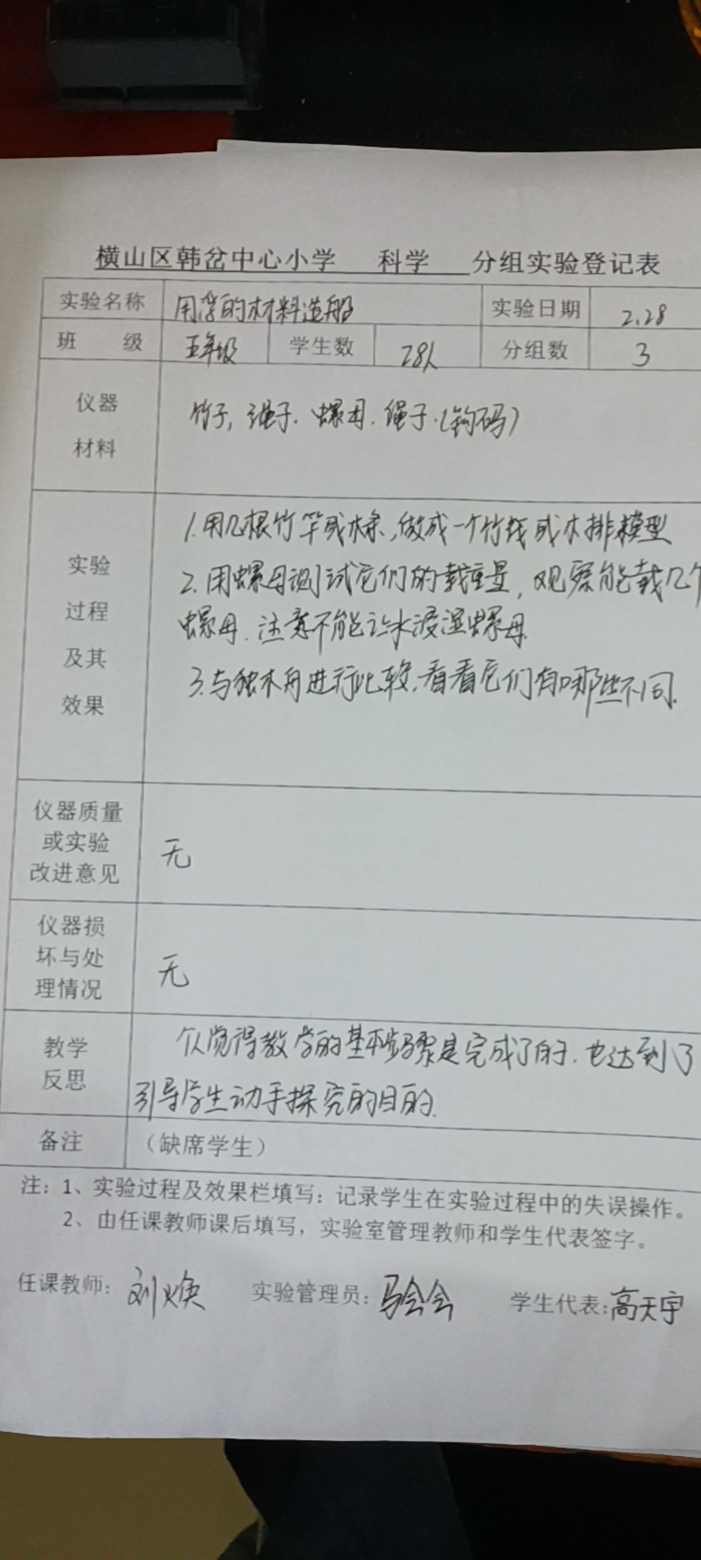 横山区韩岔中心小学 科学 分组实验登记表
实验名称 用浮的材料造船 实验日期 2.28
班 级 五年级 学生数 28人 分组数 3
仪器
材料
竹子, 绳子. 螺母. 绳子.(钩码)
实验
过程
及其
效果
1.用几根竹竿或木条,做成一个竹筏或木排模型
2.用螺母测试它们的载重量,观察能载几个
螺母.注意不能让水浸湿螺母
3.与独木舟进行比较,看看它们有哪些不同.
仪器质量
或实验
改进意见
无
仪器损
坏与处
理情况
无
教学
反思
觉得教学的基本步骤是完成了的.也达到了
引导学生动手探究的目的.
备注 (缺席学生)
注:1、实验过程及效果栏填写:记录学生在实验过程中的失误操作。
2、由任课教师课后填写,实验室管理教师和学生代表签字。
任课教师: 刘焕 实验管理员: 马会会 学生代表: 高天宇